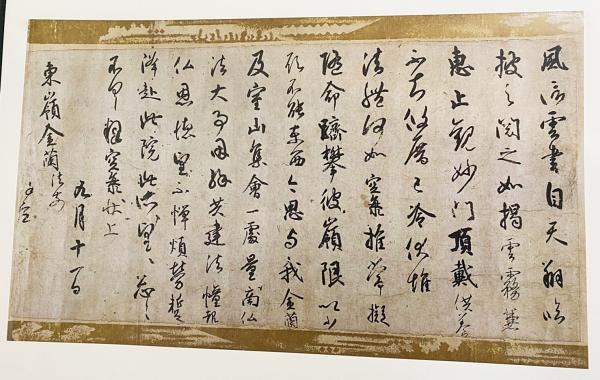 風信雲書自天翔臨
披之閲之如掲雲霧兼
恵止観妙門頂戴供養
不知攸厝已冷伏惟
法體何如空海推常擬
随命躋攀彼嶺限以少
願不能東西今思与我金蘭
及室山集會一處量商仏
法大事因縁共建法幢報
仏恩徳望不憚煩勞蹔
降赴此院此所望々々忩々
不具釋空海状上
九月十一日
東嶺金蘭法前
謹空